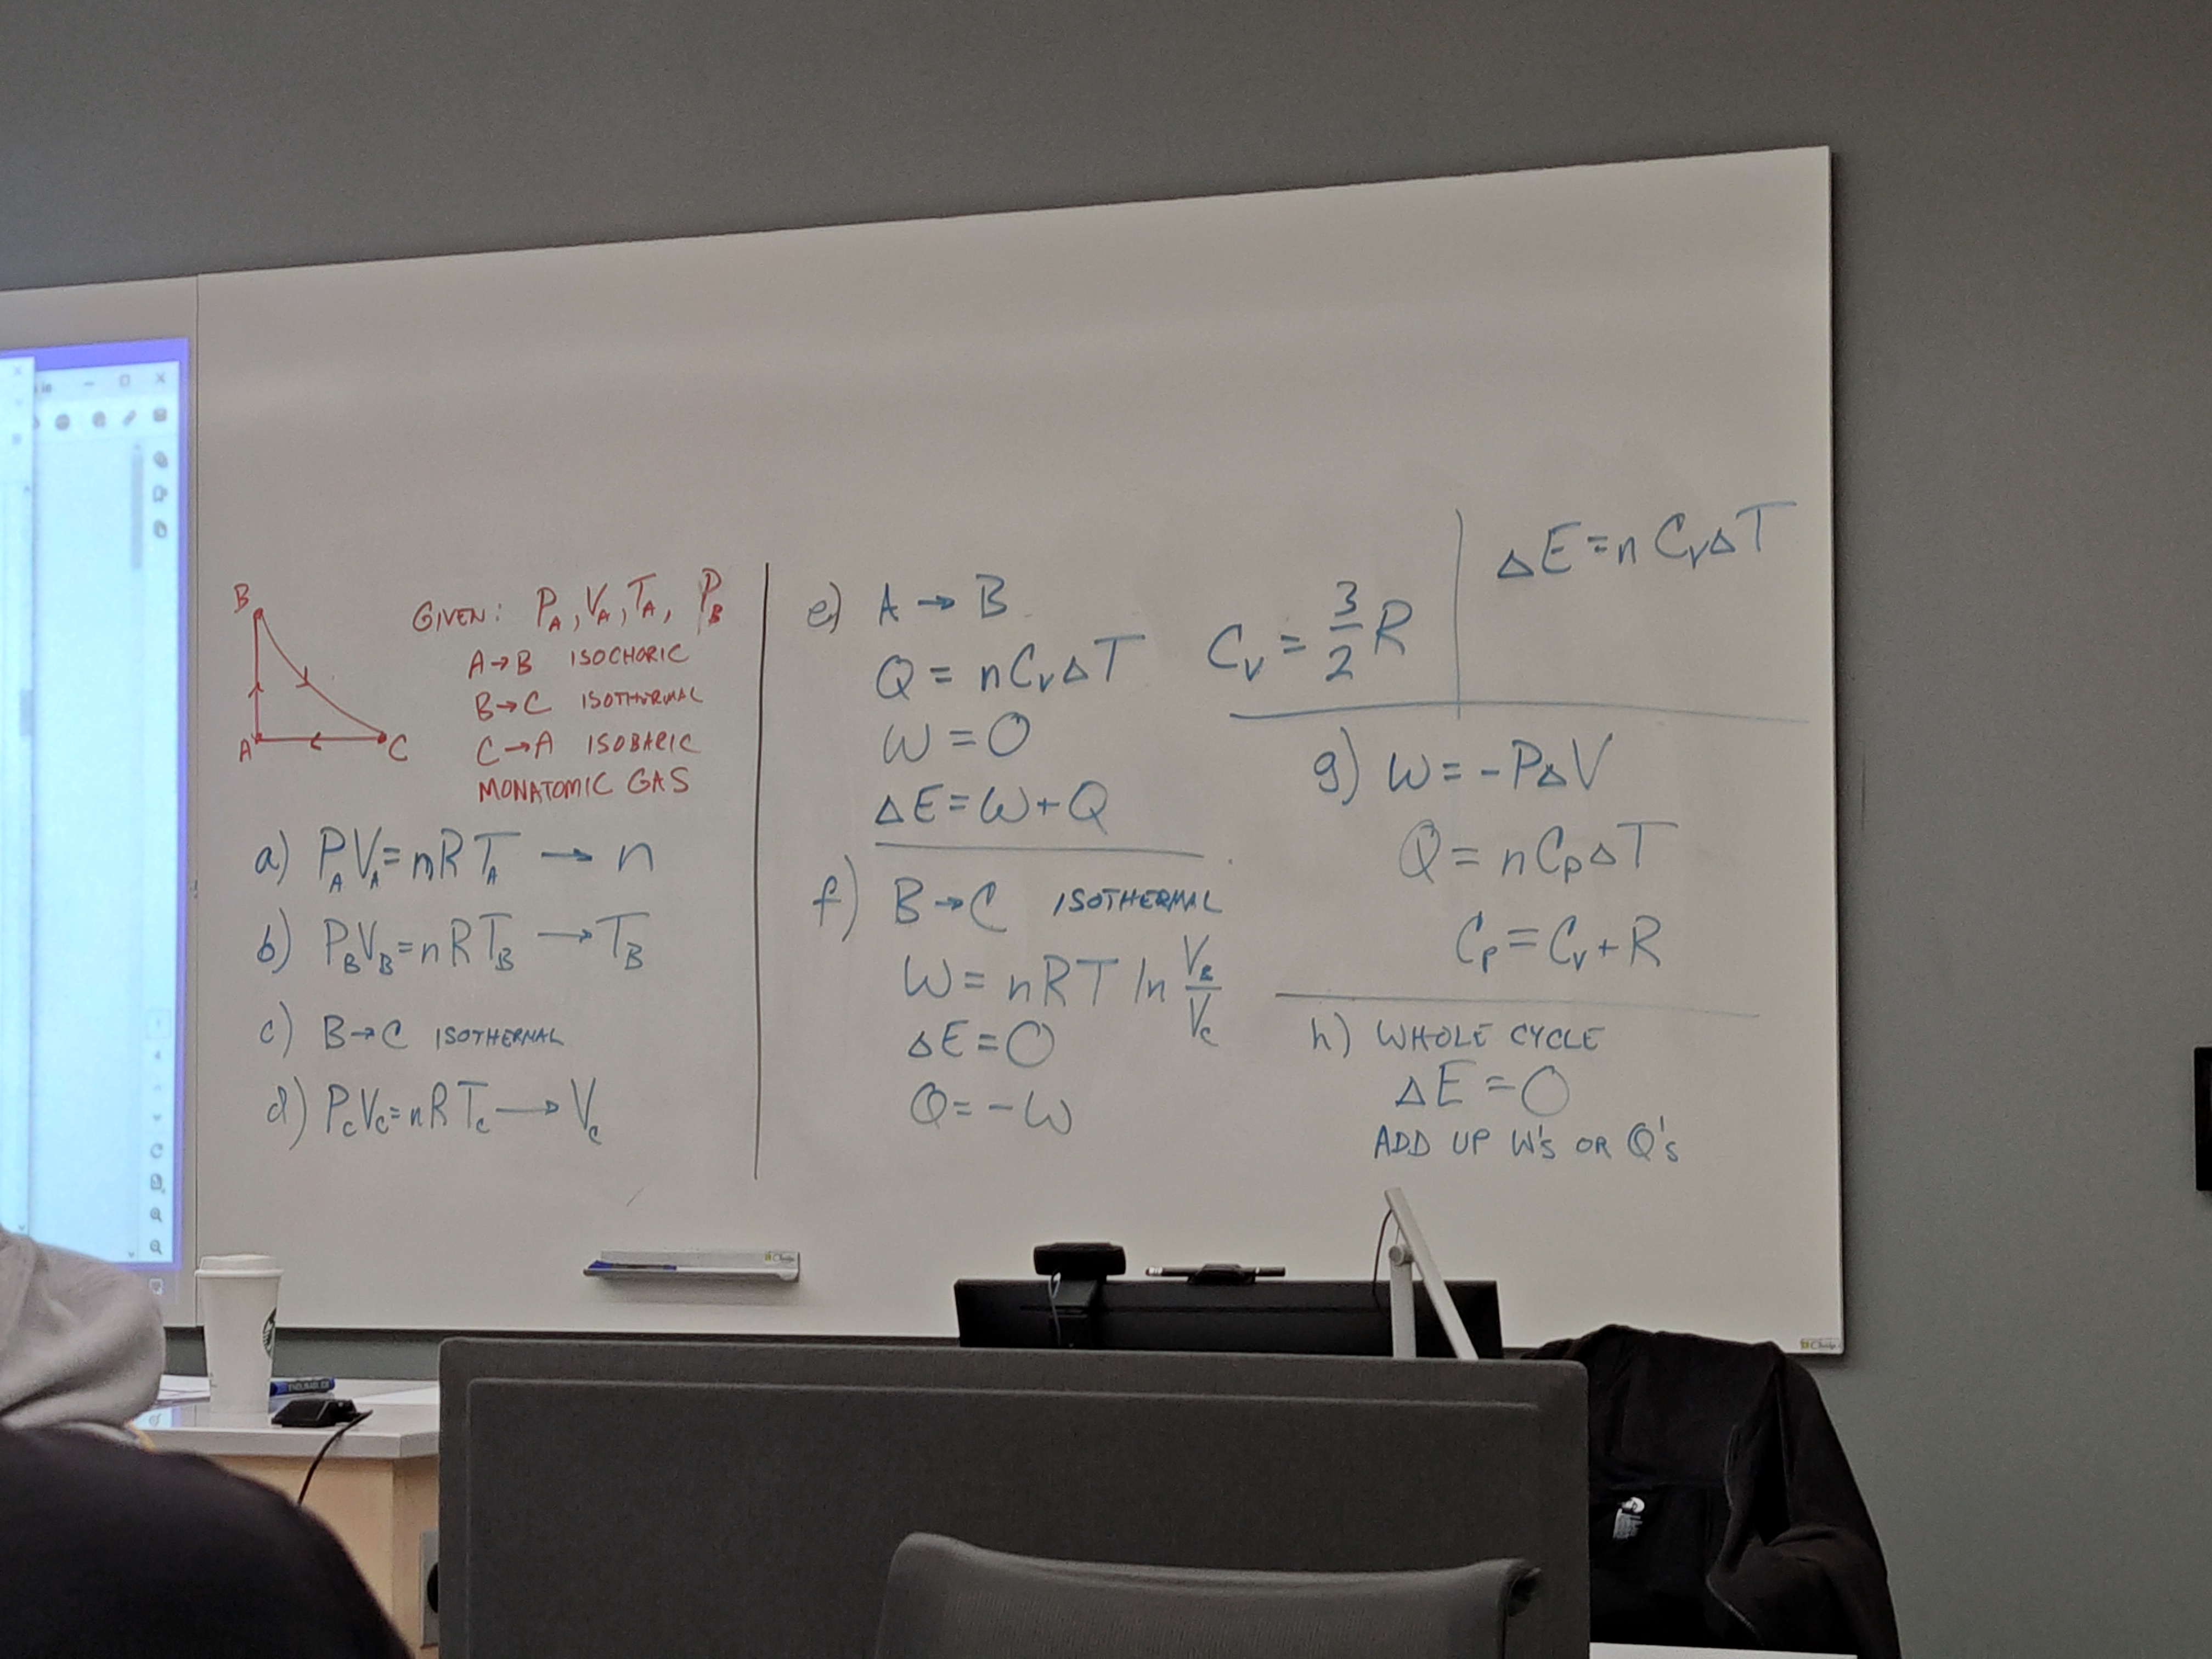 B
A
C
GIVEN: P_A, V_A, T_A, P_B
A→B ISOCHORIC
B→C ISOTHERMAL
C→A ISOBARIC
MONATOMIC GAS
a) P_A V_A = nRT_A → n
b) P_B V_B = nRT_B → T_B
c) B→C ISOTHERMAL
d) P_C V_C = nRT_C → V_C
e) A → B
Q = nC_VΔT
W = 0
ΔE = W + Q
C_V = 3/2 R
ΔE = nC_VΔT
f) B→C ISOTHERMAL
W = nRT ln V_B/V_C
ΔE = 0
Q = -W
g) W = -PΔV
Q = nC_PΔT
C_P = C_V + R
h) WHOLE CYCLE
ΔE = 0
ADD UP W's OR Q's